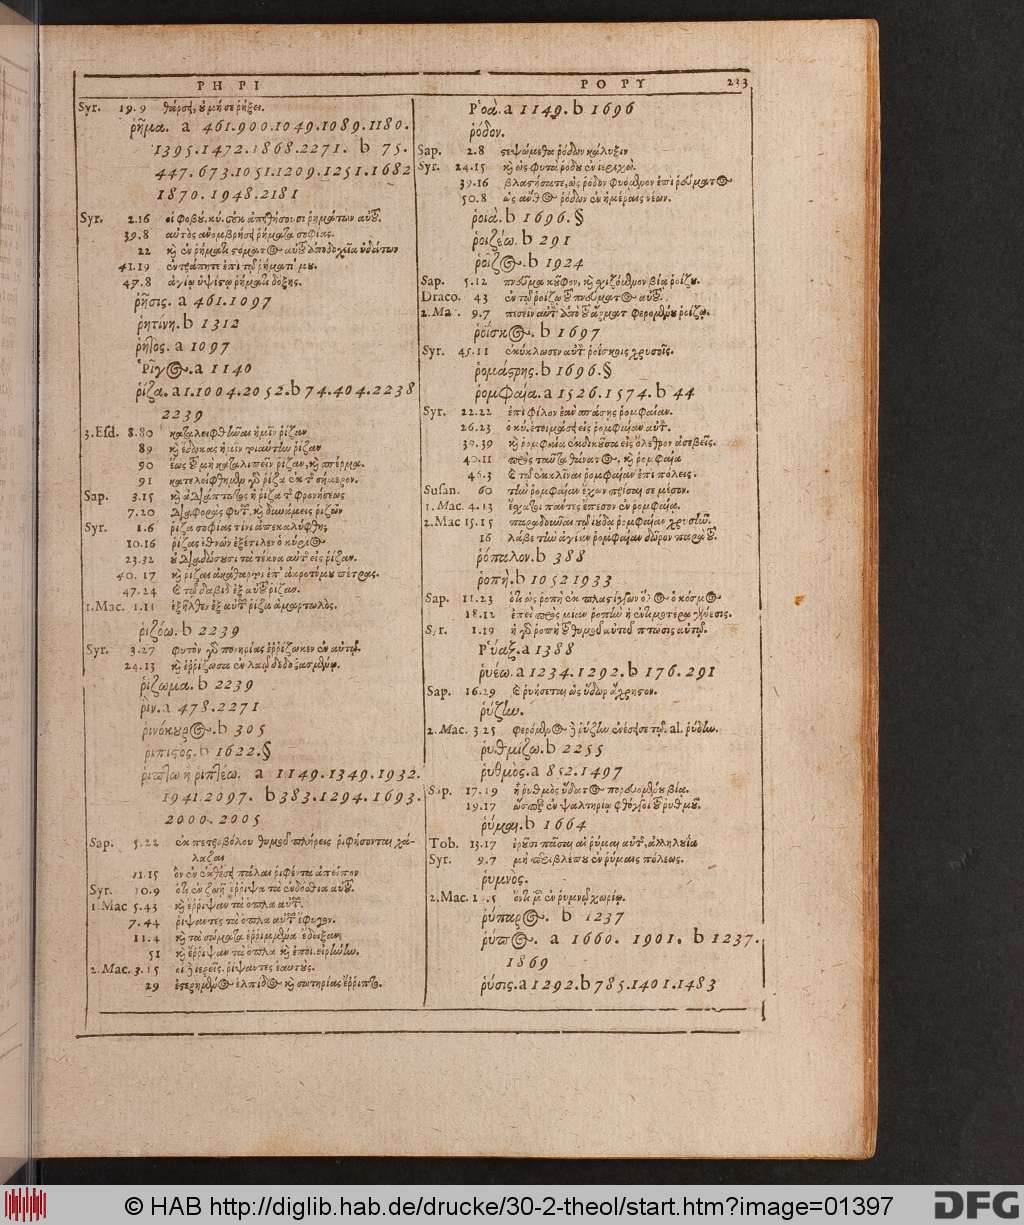 ΡΗ ΡΙ
Syr. 19.9 θάρσει, οὐ μή σε ῥήξει.
ῥῆμα. a 461.900.1049.1089.1180.
1395.1472.1868.2271. b 75.
447.673.1051.1209.1251.1682
1870.1948.2181
Syr. 2.16 οἱ φοβού. κύ. οὐκ ἀπειθήσουσι ῥημάτων αὐτοῦ.
39.8 αὐτὸς ἀνομβρήσει ῥήματα σοφίας.
22 καὶ ἐν ῥήματι στόματος αὐτοῦ ἀποδοχεῖα ὑδάτων
41.19 ἐντράπητε ἐπὶ τῷ ῥήματί μου.
47.8 ἁγίῳ ὑψίστῳ ῥήματι δόξης.
ῥῆσις. a 461.1097
ῥητίνη. b 1312
ῥητος. a 1097
Ῥῖγος. a 1140
ῥίζα. a 1.1004.2052. b 74.404.2238
2239
3. Esd. 8.80 καταλειφθῆναι ἡμῖν ῥίζαν
89 καὶ ἔδωκας ἡμῖν τοιαύτην ῥίζαν
90 ἕως τοῦ μὴ καταλιπεῖν ῥίζαν, καὶ σπέρμα.
91 κατελείφθημεν γὰρ ῥίζα ἐν τῇ σήμερον.
Sap. 3.15 καὶ ἀδιάπτωτος ἡ ῥίζα τῆς φρονήσεως
7.20 διαφορὰς φυτῶν, καὶ δυνάμεις ῥιζῶν
Syr. 1.6 ῥίζα σοφίας τίνι ἀπεκαλύφθη;
10.16 ῥίζας ἐθνῶν ἐξέτιλεν ὁ κύριος
23.32 οὐ διαδώσουσι τὰ τέκνα αὐτῆς εἰς ῥίζαν.
40.17 καὶ ῥίζαι ἀκάθαρτοι ἐπ' ἀκροτόμου πέτρας.
47.24 καὶ τῷ δαβὶδ ἐξ αὐτοῦ ῥίζαν.
1. Mac. 1.11 ἐξῆλθεν ἐξ αὐτῶν ῥίζα ἁμαρτωλός.
ῥιζόω. b 2239
Syr. 3.27 φυτὸν γὰρ πονηρίας ἐρρίζωκεν ἐν αὐτῷ.
24.13 καὶ ἐρρίζωσα ἐν λαῷ δεδοξασμένῳ.
ῥίζωμα. b 2239
ῥίν. a 478.2271
ῥινόκυρος. b 305
ῥιπιστος. b 1622.§
ῥίπτω ἢ ῥιπτέω. a 1149.1349.1932.
1941.2097. b 383.1294.1693.
2000.2005
Sap. 5.22 ἐκ πετροβόλου θυμοῦ πλήρεις ῥιφήσονται χά-
λαζαι
11.15 ὃν ἐν ἐκθέσει πάλαι ῥιφέντα ἀπεῖπον
Syr. 10.9 ὅτι ἐν ζωῇ ἔρριψα τὰ ἐνδόσθια αὐτοῦ.
1. Mac 5.43 καὶ ἔρριψαν τὰ ὅπλα αὐτῶν.
7.44 ῥίψαντες τὰ ὅπλα αὐτῶν ἔφυγον.
11.4 καὶ τὰ σώματα ἐρριμμένα ἔδειξαν,
51 καὶ ἔρριψαν τὰ ὅπλα καὶ ἐποί. εἰρήνην.
2. Mac. 3.15 οἱ ἱερεῖς. ῥίψαντες ἑαυτούς.
29 ἐστερημένος ἐλπίδος καὶ σωτηρίας ἔρριπτο.
ΡΟ ΡΥ 223
Ῥοὰ. a 1149. b 1696
ῥόδον.
Sap. 2.8 στεψώμεθα ῥόδων κάλυξιν
Syr. 24.15 καὶ ὡς φυτὰ ῥόδου ἐν ἱεριχῷ.
39.16 βλαστήσατε, ὡς ῥόδον φυόμενον ἐπὶ ῥεύματος
50.8 ὡς ἄνθος ῥόδων ἐν ἡμέραις νέων.
ῥοιὰ. b 1696.§
ῥοιζέω. b 291
ῥοῖζος. b 1924
Sap. 5.12 πνεῦμα κοῦφον, καὶ σχιζόμενον βίᾳ ῥοίζου.
Draco. 43 ἐν τῷ ῥοίζῳ τοῦ πνεύματος αὐτοῦ.
2. Mac. 9.7 πεσεῖν αὐτὸν ἀπὸ τοῦ ἅρματ φερομένου ῥοίζῳ.
ῥοΐσκος. b 1697
Syr. 45.11 ἐκύκλωσεν αὐτὸν ῥοΐσκοις χρυσοῖς.
ῥομάστρης. b 1696.§
ῥομφαία. a 1526.1574. b 44
Syr. 22.22 ἐπὶ φίλον ἐὰν σπάσῃς ῥομφαίαν.
26.23 ὁ κύ. ἑτοιμάσει εἰς ῥομφαίαν αὐτ.
39.39 καὶ ῥομφαία ἐκδικοῦσα εἰς ὄλεθρον ἀσεβεῖς.
40.11 πρὸς ταῦτα θάνατος, καὶ ῥομφαία
46.3 καὶ τῷ ἐκκλῖναι ῥομφαίαν ἐπὶ πόλεις.
Susan. 60 τὴν ῥομφαίαν ἔχων πρίσαι σε μέσον.
1. Mac. 4.13 ἔσχατοι πάντες ἔπεσον ἐν ῥομφαίᾳ.
2. Mac 15.15 παραδοῦναι τῷ ἰούδᾳ ῥομφαίαν χρυσῆν.
16 λάβε τὴν ἁγίαν ῥομφαίαν δῶρον παρὰ τοῦ.
ῥόπαλον. b 388
ῥοπή. b 1052 1933
Sap. 11.23 ὅτι ὡς ῥοπὴ ἐκ πλαστίγγων ὅλος ὁ κόσμος
18.12 ἐπεὶ πρὸς μίαν ῥοπὴν ἡ ἐντιμοτέρα γένεσις.
Syr. 1.19 ἡ γὰρ ῥοπὴ τοῦ θυμοῦ αὐτοῦ πτῶσις αὐτῷ.
Ῥύαξ. a 1388
ῥυέω. a 1234.1292. b 176.291
Sap. 16.29 καὶ ῥυήσεται ὡς ὕδωρ ἄχρηστον.
ῥύζην.
2. Mac. 3 25 φερόμενος ῥύζην ἐνέσεισε τῷ. al. ῥύδην.
ῥυθμίζω. b 2255
ῥυθμὸς. a 852.1497
Sap. 17.19 ἢ ῥυθμὸς ὕδατος πορευομένου βίᾳ.
19.17 ὥσπερ ἐν ψαλτηρίῳ φθόγγοι τοῦ ῥυθμοῦ.
ῥύμαι. b 1664
Tob. 13.17 ἐροῦσι πᾶσαι αἱ ῥύμαι αὐτῆς, ἀλληλούϊα
Syr. 9.7 μὴ περιβλέπου ἐν ῥύμαις πόλεως.
ῥυμνὸς.
ῥύπαρος. b 1237
ῥύπος. a 1660. 1901. b 1237.
1869
ῥύσις. a 1292. b 785.1401.1483
© HAB http://diglib.hab.de/drucke/30-2-theol/start.htm?image=01397
DFG